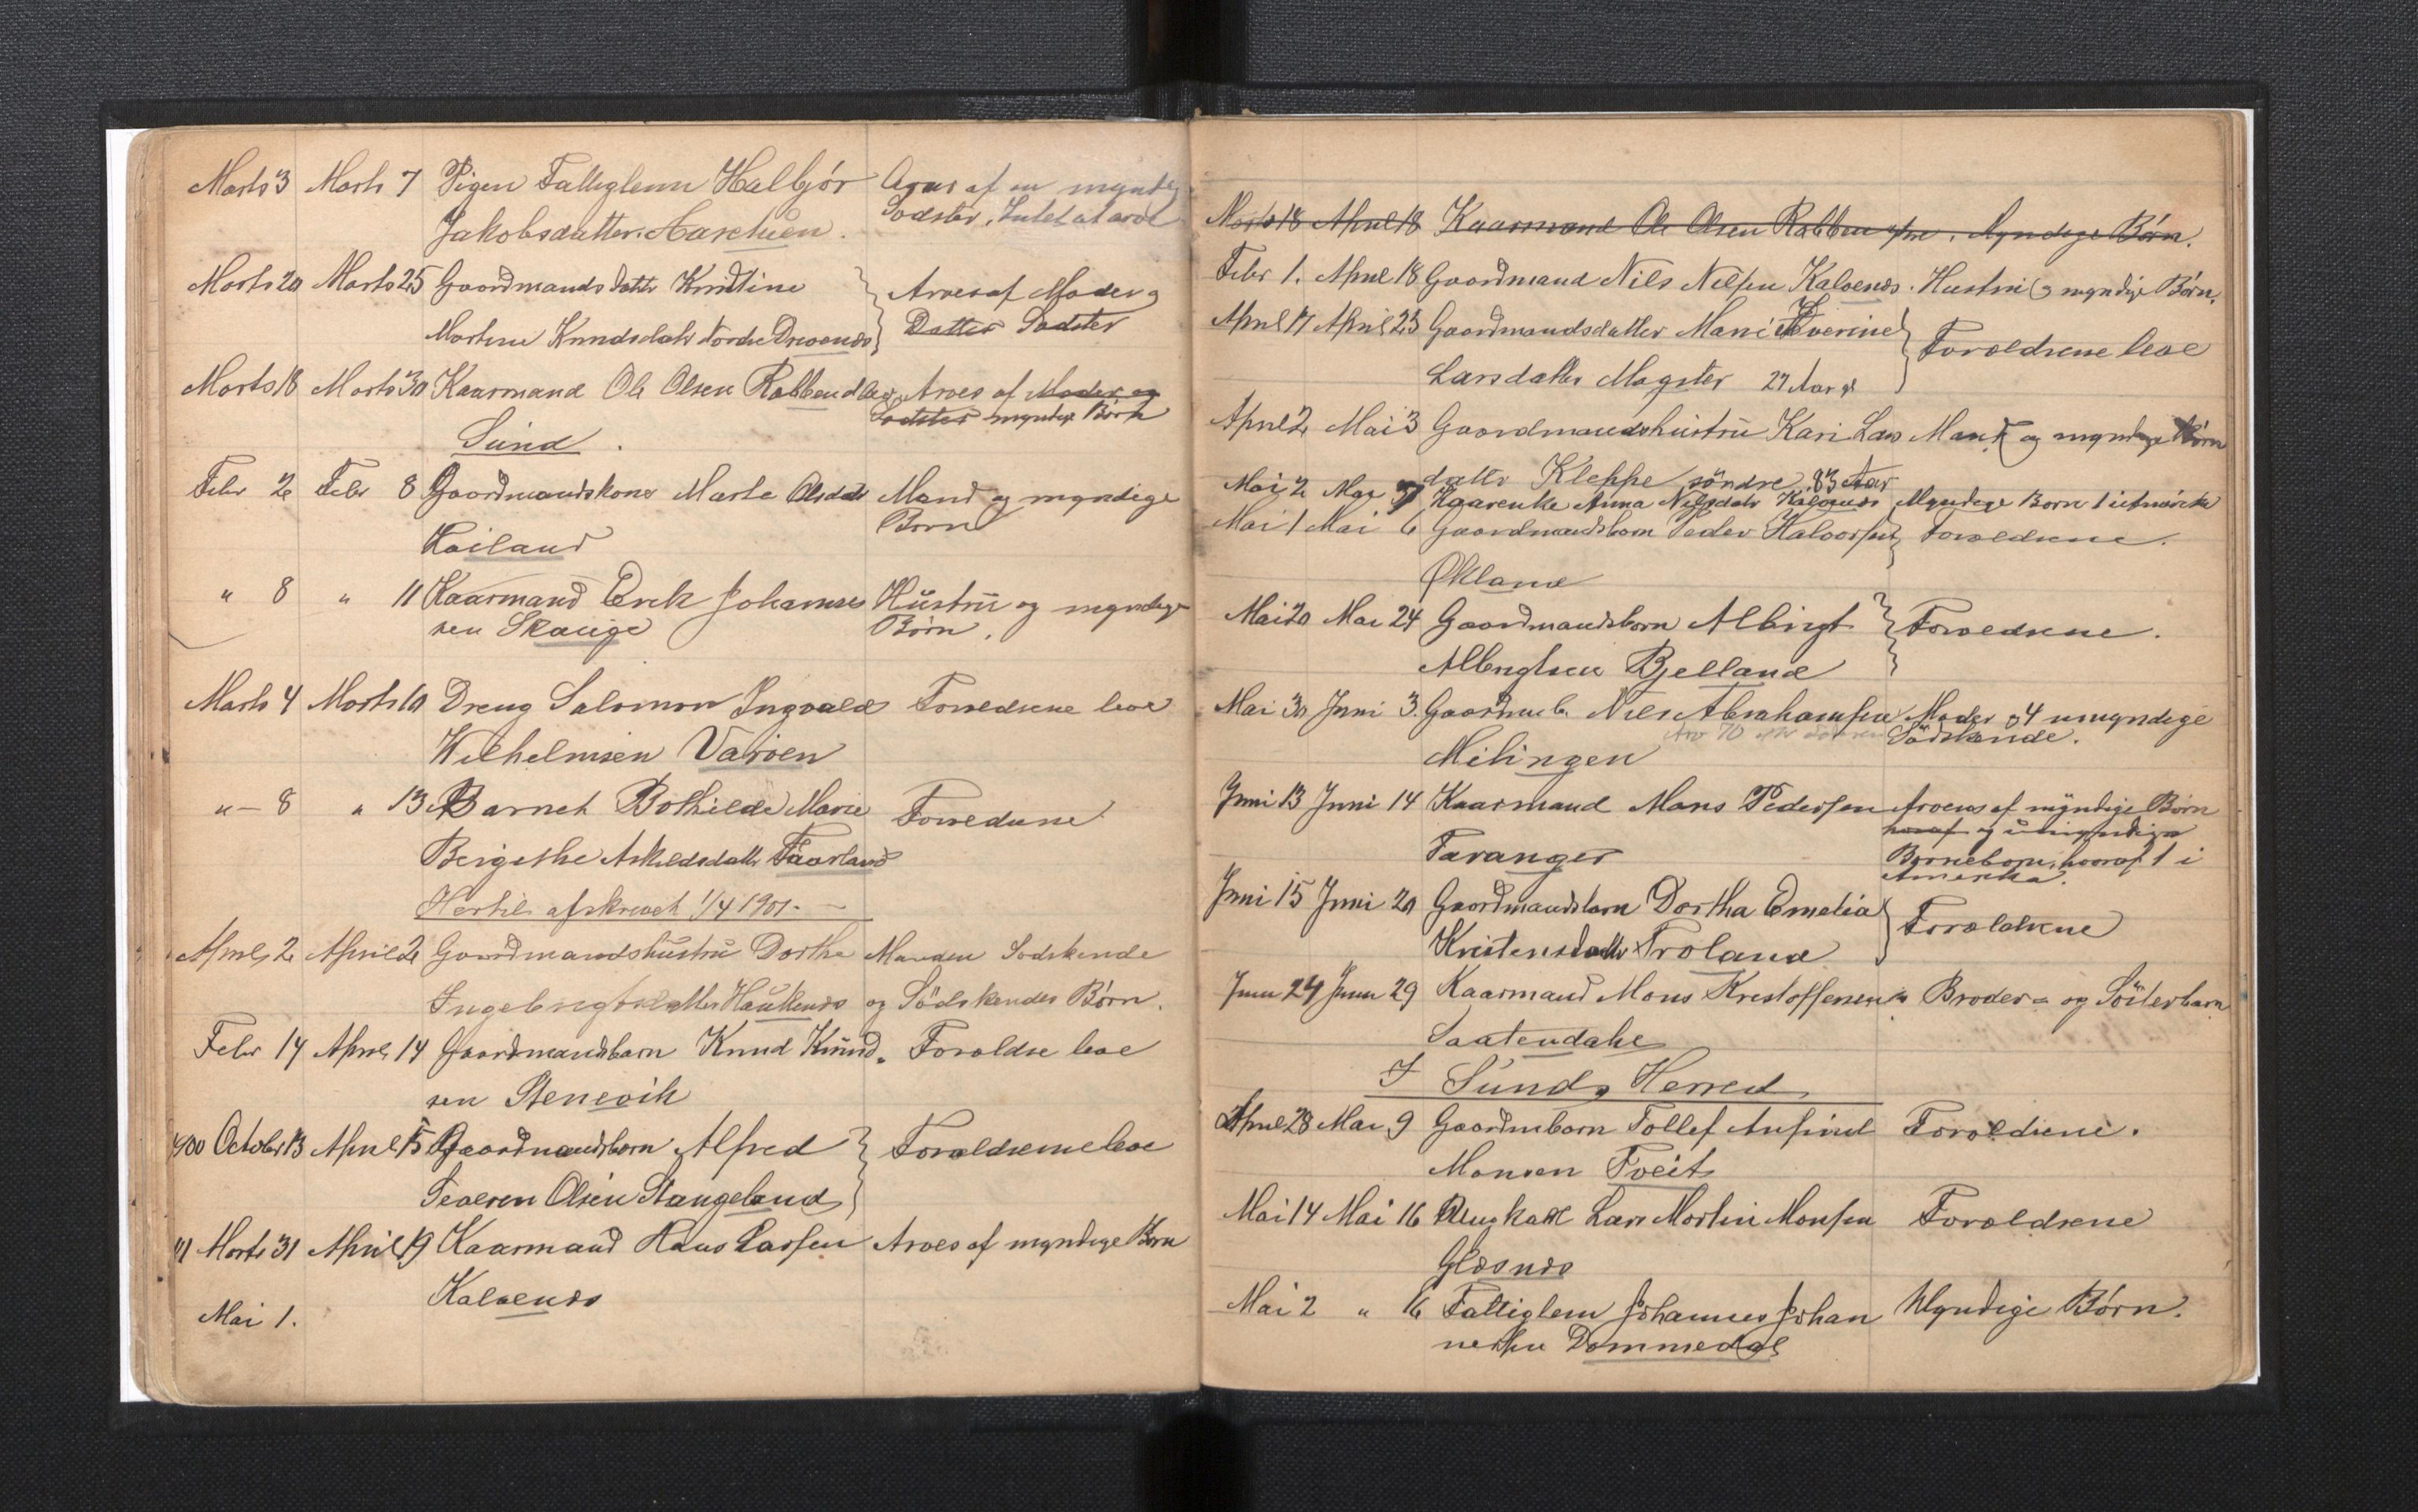 Marts 3 Marts 7 Pigen Fattiglem Halbjör Arves af en myndig
Jakobsdatter. Aarskuen. Sødster. Intet at arve
Marts 20 Marts 25 Gaardmandsdatter Kristine Arves af Moder og
Martine Knudsdatr nordre Drivenes Datter Sødster
Marts 18 Marts 30 Kaarmand Ole Olsen Rabben Arves af Moder og
Sund. Sødster myndige Börn
Febr 2 Febr 8 Gaardmandskone Marte Olsdatr Mand og myndige
Loiland Børn
" 8 " 11 Kaarmand Erik Johannes Hustru og myndige
sen Skauge Børn.
Marts 4 Marts 10 Dreng Salomon Ingvald Forældrene leve
Wilhelmsen Varöen
" - 8 " 13 Barnet Bothilde Marie Forældrene
Bergethe Askildsdatter Faarland
Hertil afskrevet 1/4 1901.
April 2 April 2 Gaardmandshustru Dorthe Manden Sødskende
Ingebrigtsdatter Haukenes og Södskendes Børn.
Febr 14 April 14 Gaardmandsbarn Knud Knud- Forældre leve
sen Stenevik
1900 October 13 April 15 Gaardmandsbarn Alfred Forældrene leve
Severin Olsen Stangeland
" Marts 31 April 19 Kaarmand Hans Larsen Arves af myndige Børn
Kalvenes
Mai 1.
Marts 18 April 18 Kaarmand Ole Olsen Rabben Myndige Børn.
Febr 1. April 18 Gaardmand Nils Nilsen Kalvenes. Hustru og myndige Børn.
April 17 April 23 Gaardmandsdatter Marie Severine Forældrene leve
Larsdatter Magster 27 Aar gl
April 2 Mai 3 Gaardmandshustru Kari Lars Mand og myndige Børn
datter Kleppe söndre 83 Aar
Mai 2 Mai 7 Kaarenke Anna Nilsdatr Kalvenes Myndige Børn 1 i Amerika
Mai 1 Mai 6 Gaardmandsbarn Peder Halvorsen Forældrene.
Økland
Mai 20 Mai 24 Gaardmandsbarn Albrigt Forældrene.
Albrigtsen Bjelland
Mai 30 Juni 3. Gaardmb. Nils Abrahamsen Moder og 4 umyndige
Milingen Södskende.
Juni 13 Juni 14 Kaarmand Mons Pedersen Arves af myndige Børn
hvoraf og umyndige
Faranger Børnebørn, hvoraf 1 i
Amerika.
Juni 15 Juni 20 Gaardmandsbarn Dortha Emelia Forældrene
Kristensdatter Troland
Juni 24 Juni 29 Kaarmand Mons Kristoffersen Broder- og Sösterbarn
Saatendahl
I Sunds Herred
April 28 Mai 9 Gaardmbarn Tollef Anfind Forældrene.
Monsen Tveit
Mai 14 Mai 16 Ungkarl Lars Martin Monsen Forældrene
Glesnes
Mai 2 " 16 Fattiglem Johannes Johan Myndige Børn.
nessen Dommedal